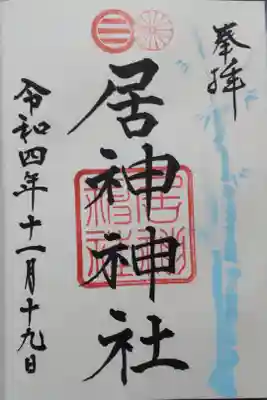 奉拝
居神神社
令和四年十一月十九日
居神神社